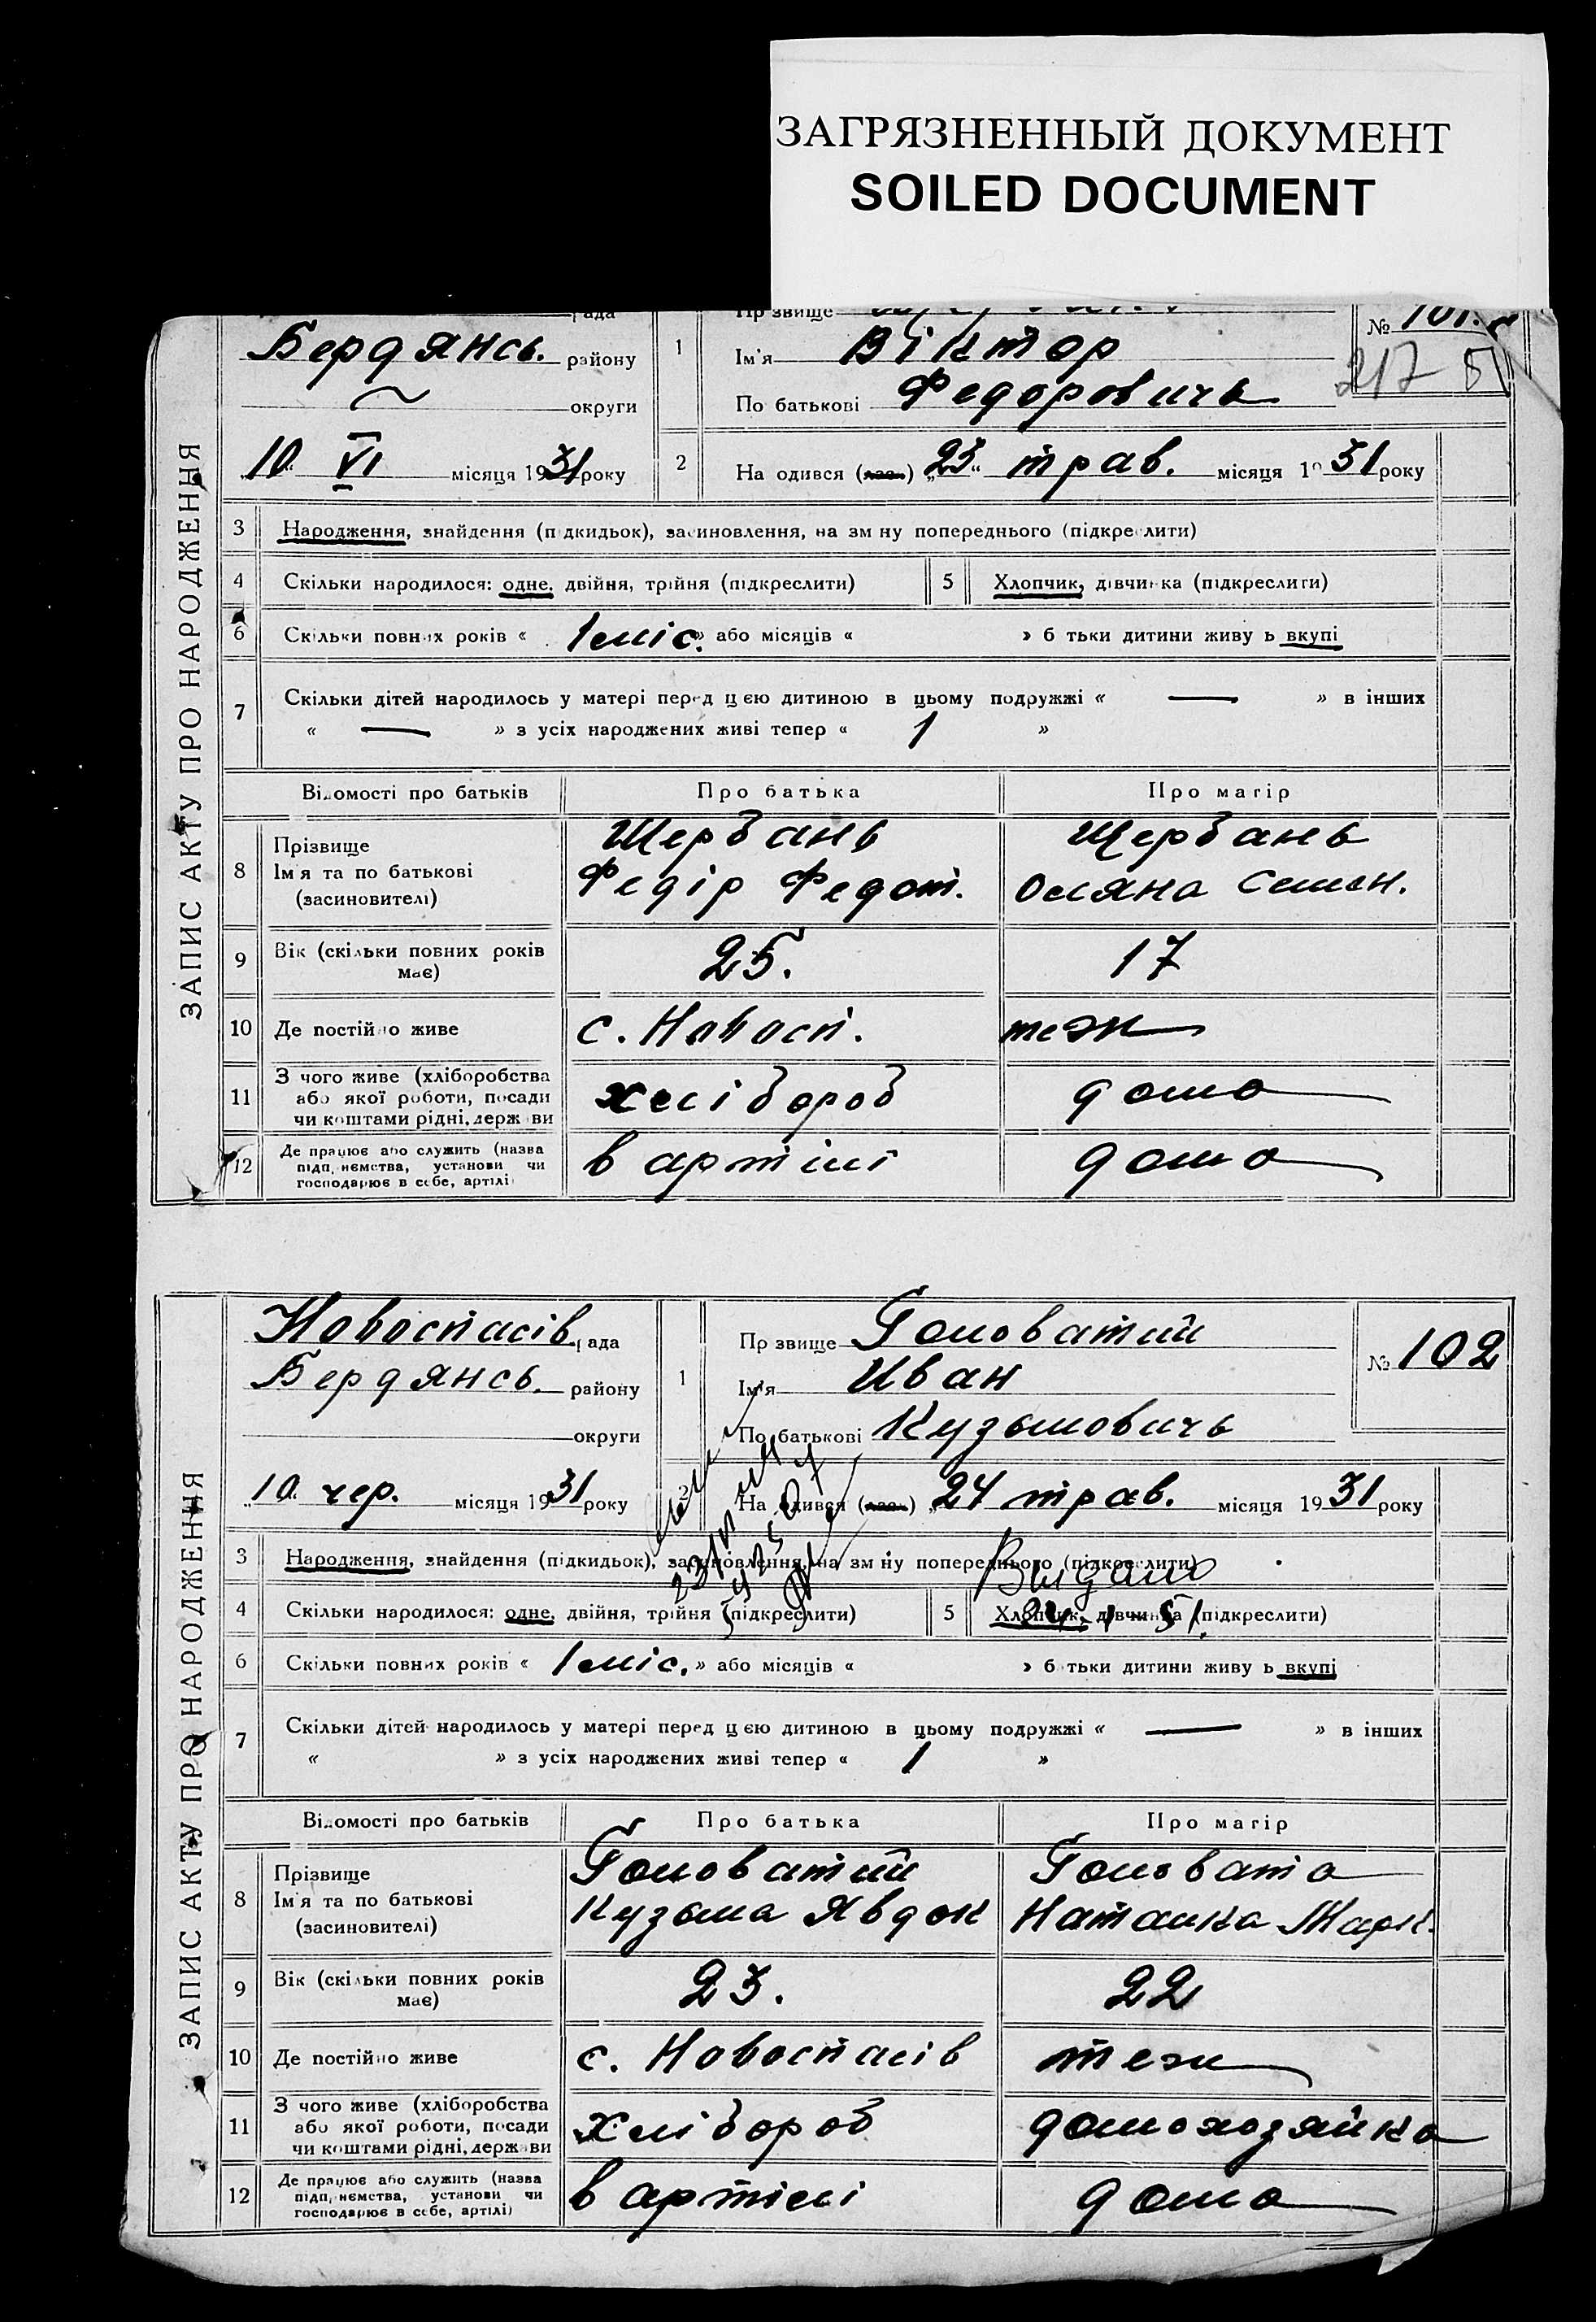 ЗАГРЯЗНЕННЫЙ ДОКУМЕНТ
SOILED DOCUMENT
ЗАПИС АКТУ ПРО НАРОДЖЕННЯ
рада
Бердянсь. району
округи
"10" VI місяця 1931 року
1 Прізвище
Ім'я Віктор
По батькові Федоровичь
№ 101.
217
2 На одився () "23" трав. місяця 1931 року
3 Народження, знайдення (підкидьок), засиновлення, на зм ну попереднього (підкреслити)
4 Скільки народилося: одне, двійня, трійня (підкреслити)
5 Хлопчик, дівчинка (підкреслити)
6 Скільки повних років « 1 міс. » або місяців « » б тьки дитини живу ь вкупі
7 Скільки дітей народилось у матері перед цією дитиною в цьому подружжі « — » в інших
« — » з усіх народжених живі тепер « 1 »
Відомості про батьків Про батька Про матір
8 Прізвище Щербань Щербань
Ім'я та по батькові Федір Федот. Оляна Семен.
(засиновителі)
9 Вік (скільки повних років має) 25. 17
10 Де постійно живе с. Новосп. теж
11 З чого живе (хліборобства або якої роботи, посади чи коштами рідні, держави хлібороб дома
12 Де працює або служить (назва підп. ємства, установи чи господарює в себе, артілі) в артілі дома
ЗАПИС АКТУ ПРО НАРОДЖЕННЯ
Новоспасів рада
Бердянсь. району
округи
"10" чер. місяця 1931 року
1 Пр звище Головатий
Ім'я Иван
По батькові Кузьмовичь
№ 102
2 На одився () "24 трав. місяця 1931 року
3 Народження, знайдення (підкидьок), засиновлення, на зм ну попереднього (підкреслити)
Выдано
4 Скільки народилося: одне, двійня, трійня (підкреслити)
5 Хлопчик, дівчинка (підкреслити)
6 Скільки повних років « 1 міс. » або місяців « » б тьки дитини живу ь вкупі
7 Скільки дітей народилось у матері перед цією дитиною в цьому подружжі « — » в інших
« » з усіх народжених живі тепер « 1 »
Відомості про батьків Про батька Про матір
8 Прізвище Головатий Головата
Ім'я та по батькові Кузьма Явдок Наталка Марк.
(засиновителі)
9 Вік (скільки повних років має) 23. 22
10 Де постійно живе с. Новоспасів теж
11 З чого живе (хліборобства або якої роботи, посади чи коштами рідні, держави хлібороб домохозяйка
12 Де працює або служить (назва підп. ємства, установи чи господарює в себе, артілі) в артілі дома